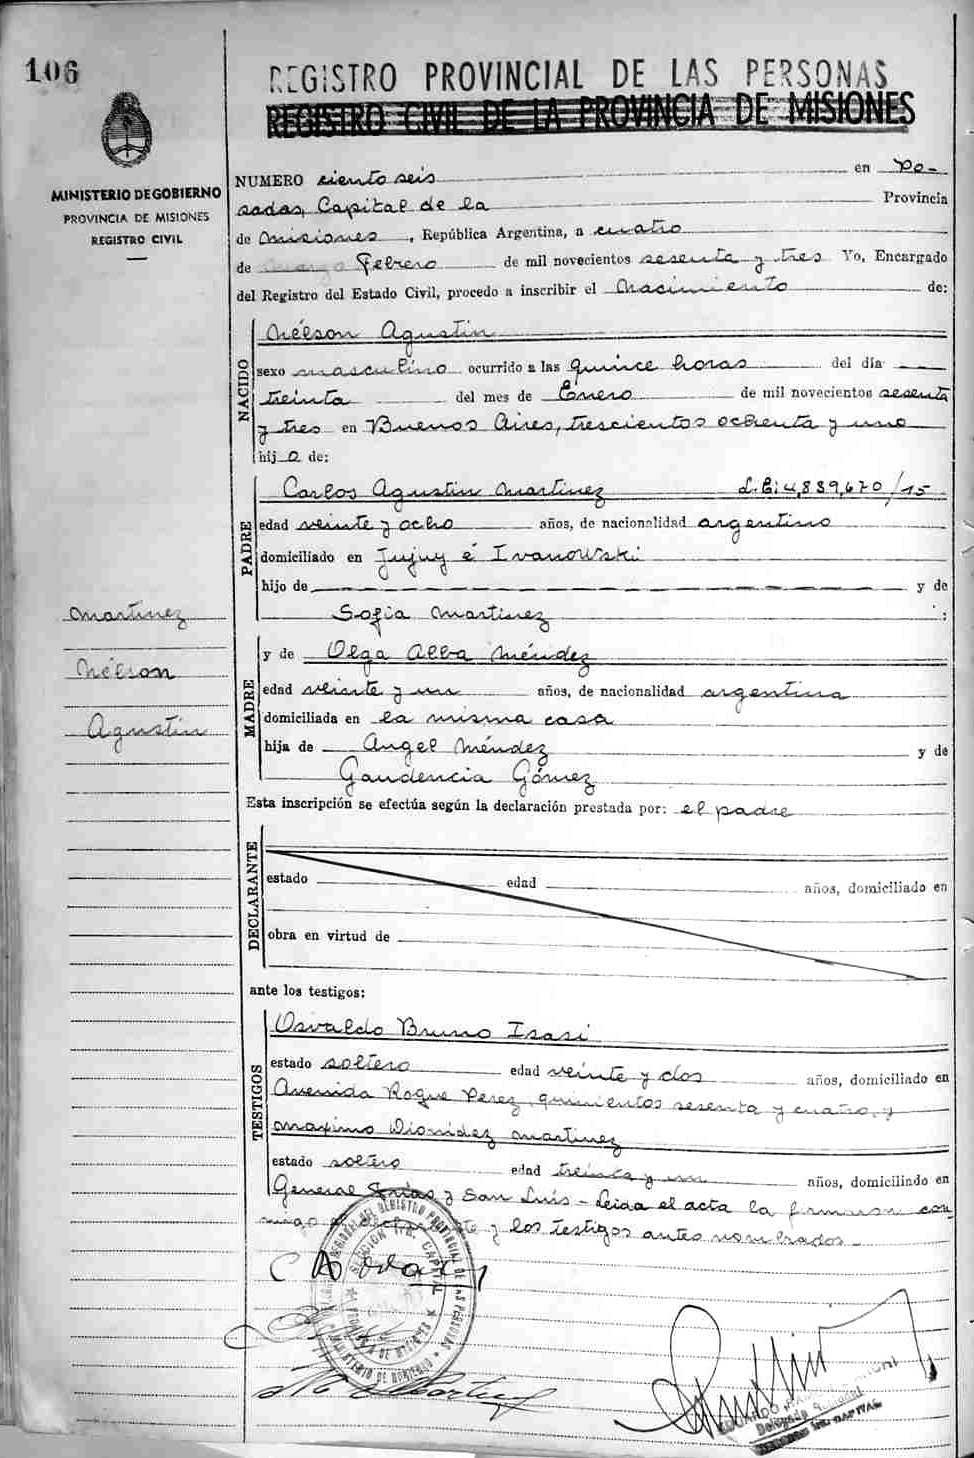 106
REGISTRO PROVINCIAL DE LAS PERSONAS
REGISTRO CIVIL DE LA PROVINCIA DE MISIONES
MINISTERIO DE GOBIERNO
PROVINCIA DE MISIONES
REGISTRO CIVIL
NUMERO ciento seis en Po-
sadas, Capital de la Provincia
de Misiones, República Argentina, a cuatro
de Febrero de mil novecientos sesenta y tres Yo, Encargado
del Registro del Estado Civil, procedo a inscribir el Nacimiento de:
NACIDO
Nélson Agustin
sexo masculino ocurrido a las quince horas del día
treinta del mes de Enero de mil novecientos sesenta
y tres en Buenos Aires, trescientos ochenta y uno
hijo de:
PADRE
Carlos Agustin Martinez L.E: 4,839,670/15
edad veinte y ocho años, de nacionalidad argentino
domiciliado en Jujuy é Ivanowski
hijo de y de
Sofia Martinez :
Martinez
Nélson
Agustin
MADRE
y de Olga Alba Méndez
edad veinte y un años, de nacionalidad argentina
domiciliada en la misma casa
hija de Angel Méndez y de
Gaudencia Gómez
Esta inscripción se efectúa según la declaración prestada por: el padre
DECLARANTE
estado edad años, domiciliado en
obra en virtud de
ante los testigos:
TESTIGOS
Osvaldo Bruno Isasi
estado soltero edad veinte y dos años, domiciliado en
Avenida Roque Perez, quinientos sesenta y cuatro, y
Maximo Dionidez Martinez
estado soltero edad treinta y un años, domiciliado en
General Frias y San Luis - Leida el acta la firman con
migo el y los testigos antes nombrados -